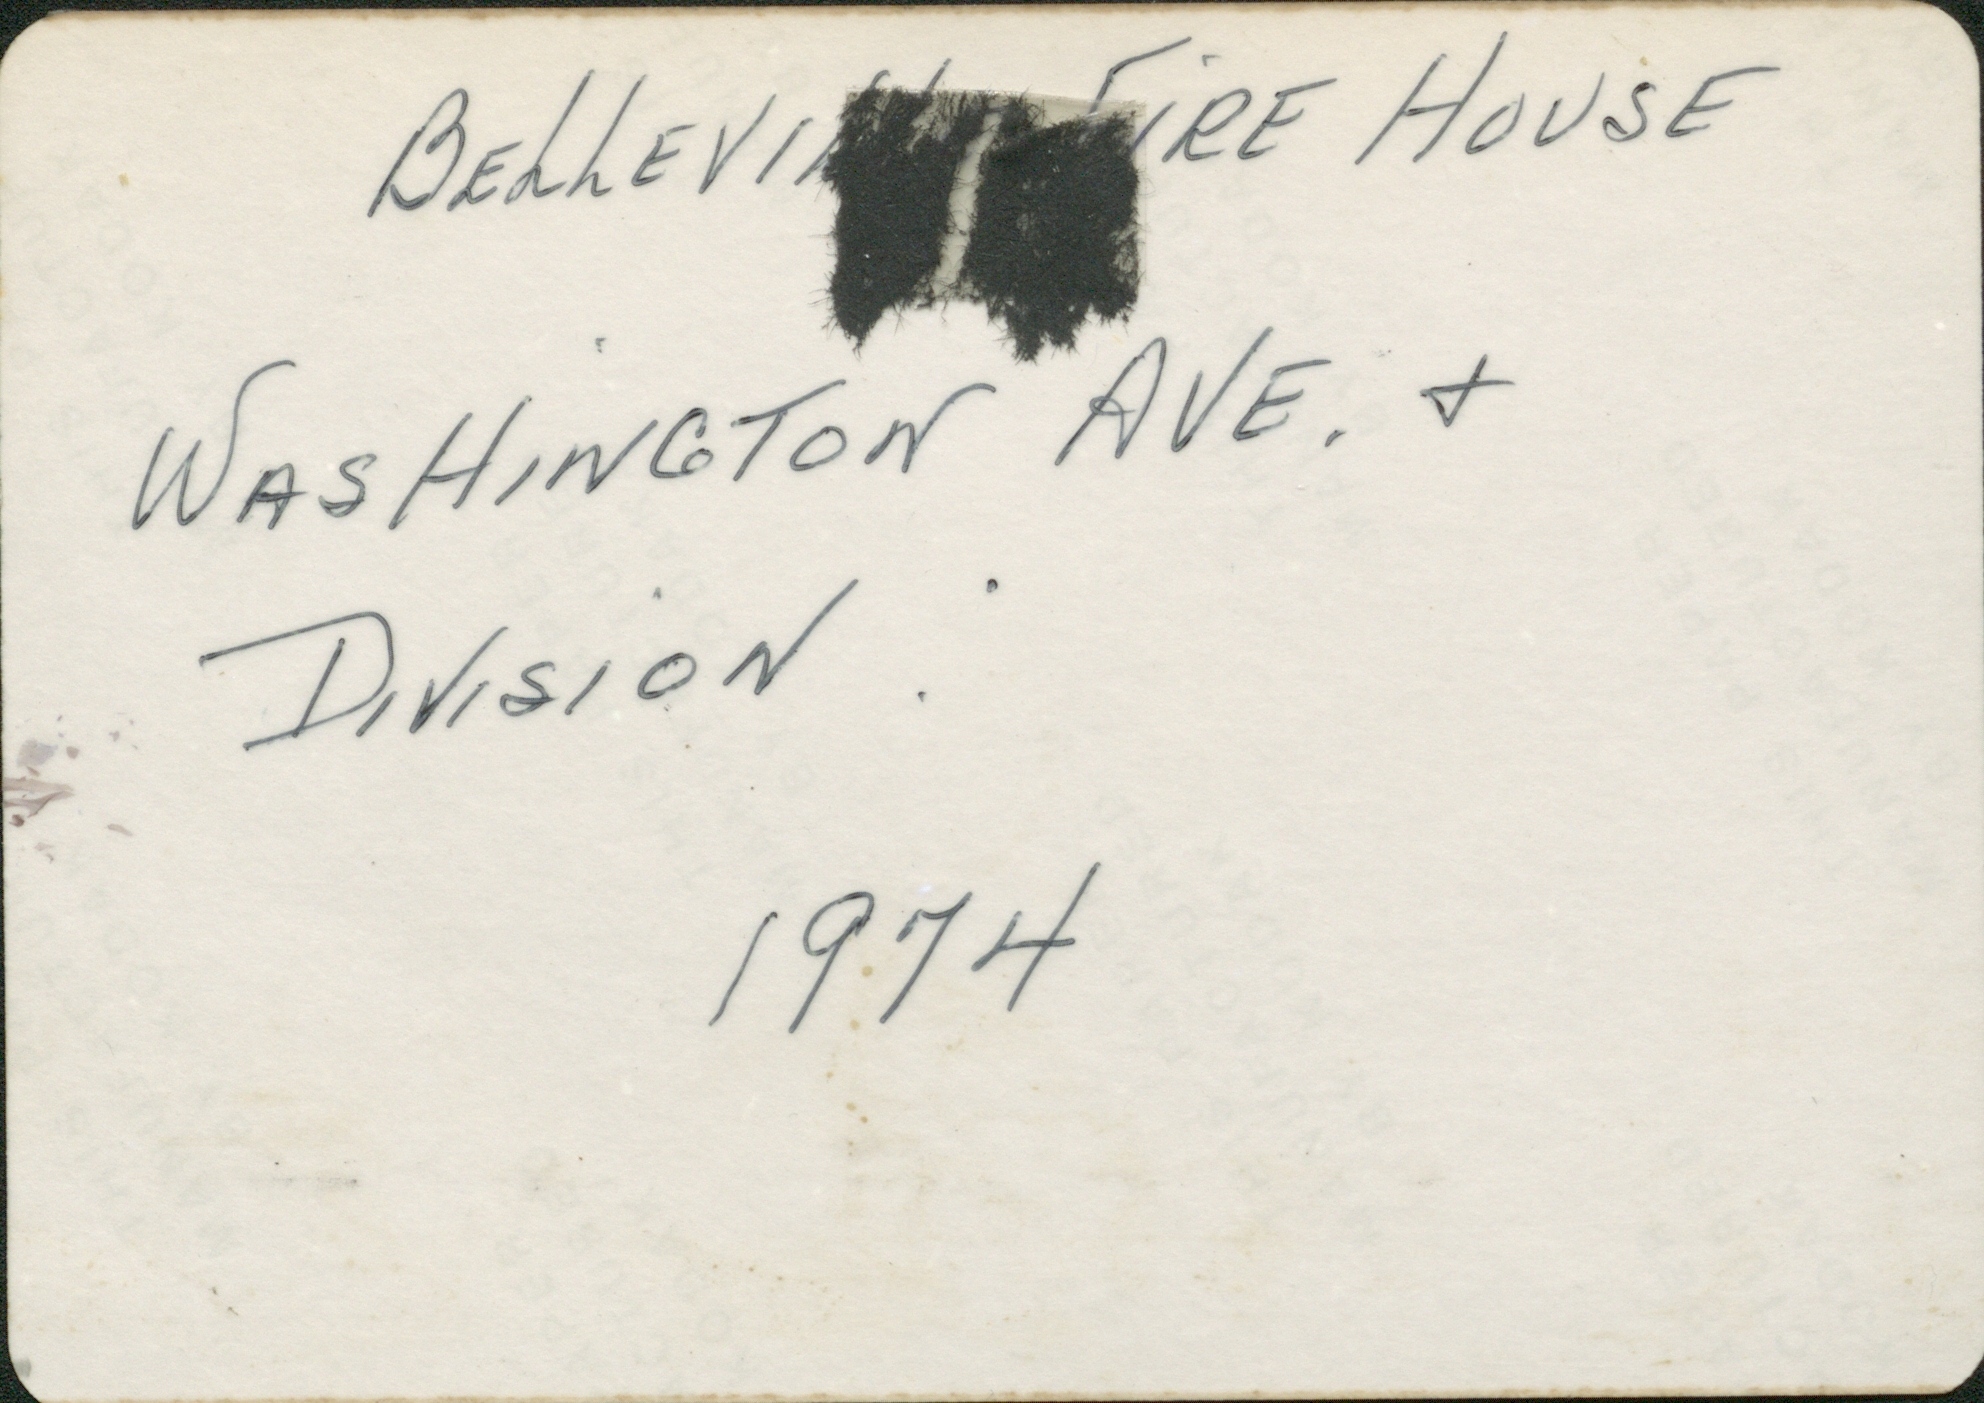 BELLEVILLE FIRE HOUSE
WASHINGTON AVE. &
DIVISION
1974